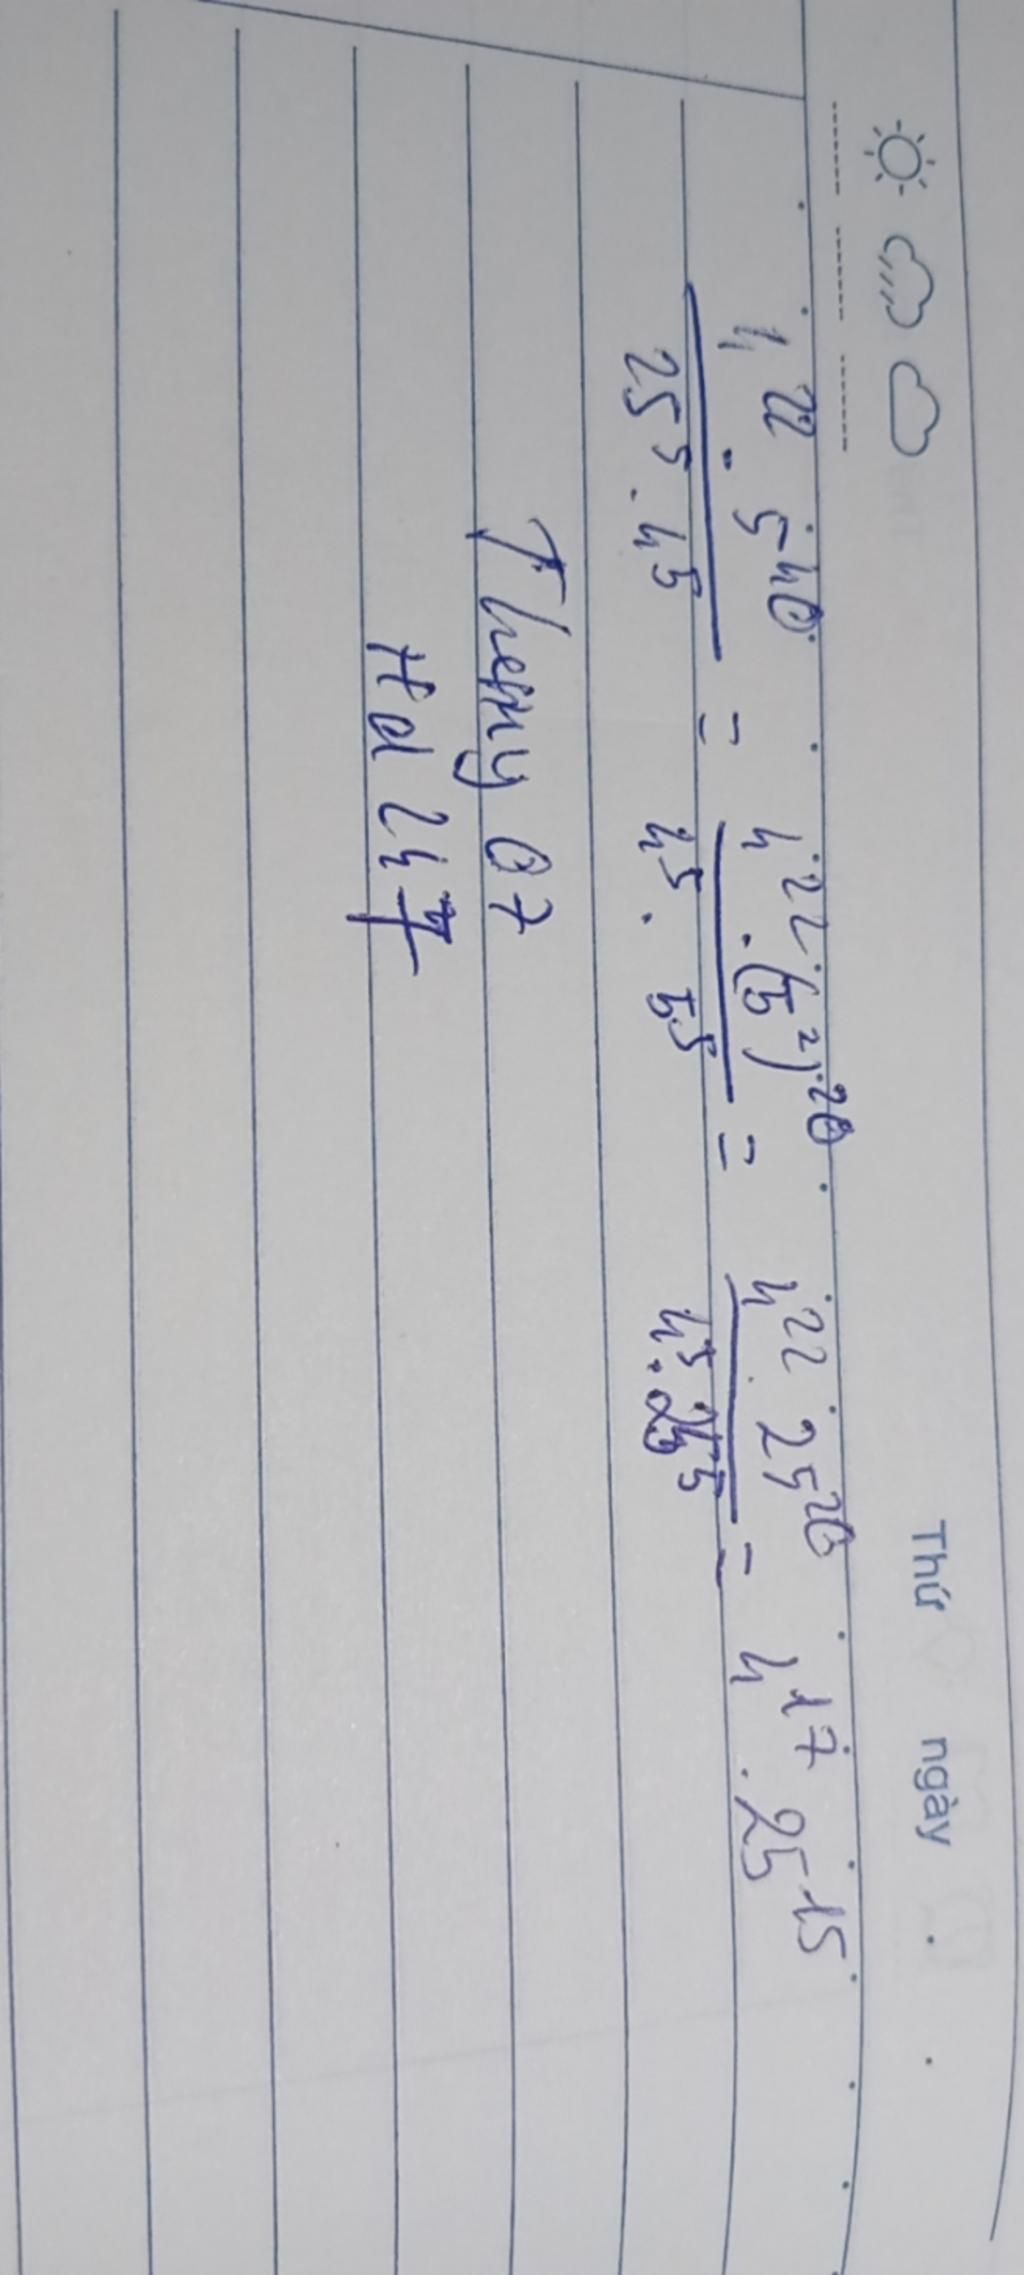 Thứ ngày
4²² . 5⁴⁰ / 25⁵ . 4⁵ = 4²² . (5²)²⁰ / 4⁵ . 5⁵ = 4²² . 25²⁰ / 4⁵ . 25⁵ = 4¹⁷ . 25¹⁵
07
Hd 247